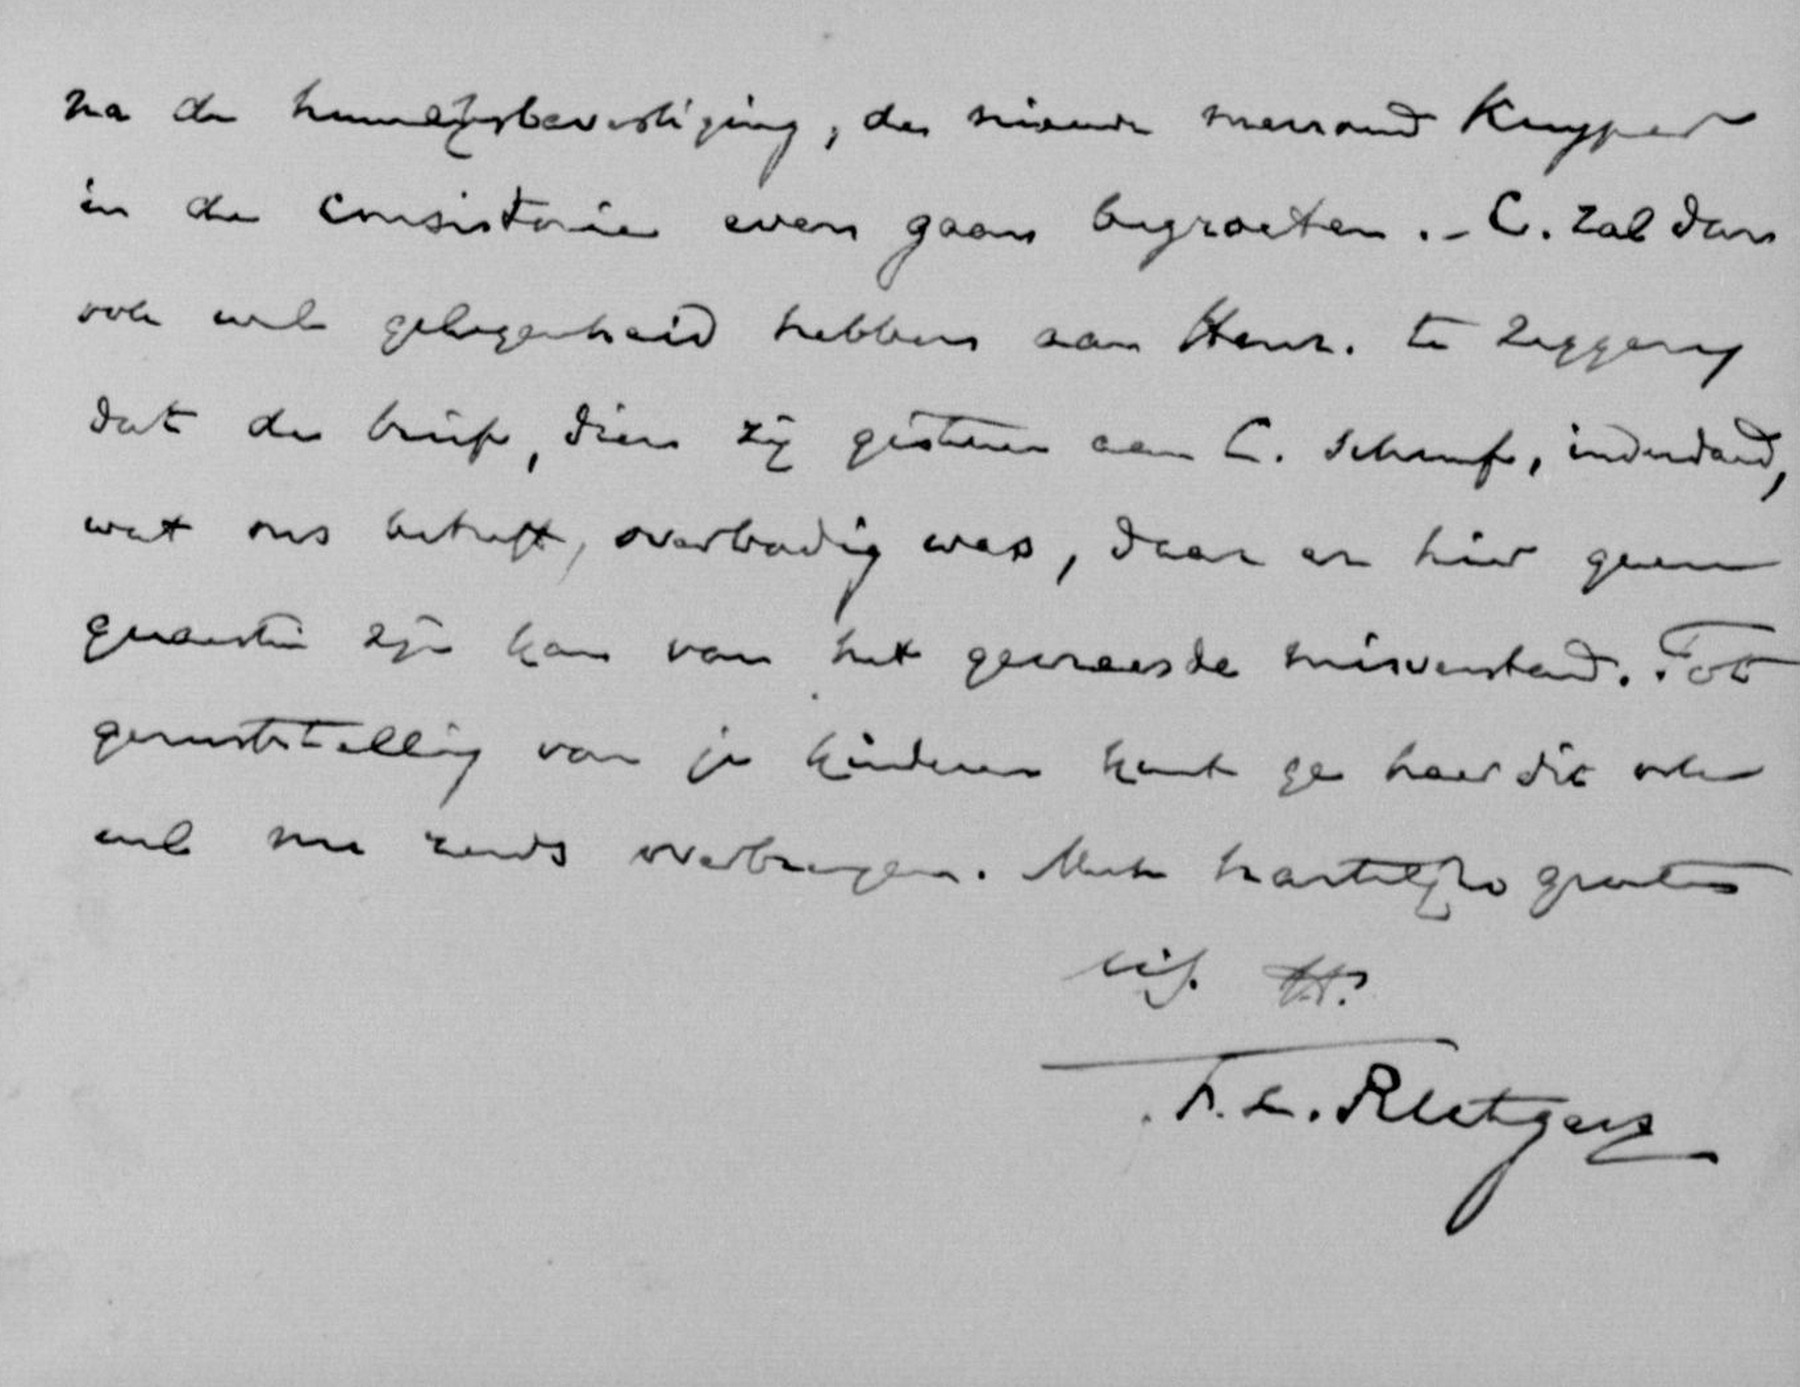 na de huwelijksbevestiging, de nieuwe mevrouw Kuyper
in de consistorie even gaan begroeten. - C. zal dan
ook wel gelegenheid hebben aan Henr. te zeggen,
dat de brief, dien zij gisteren aan C. schreef, inderdaad,
wat ons betreft, overbodig was, daar er hier geen
quaestie zijn kan van het gevreesde misverstand. Tot
geruststelling van je kinderen kunt ge haar dit ook
wel nu reeds overbrengen. Met hartelijke groeten
F. L. Rutgers